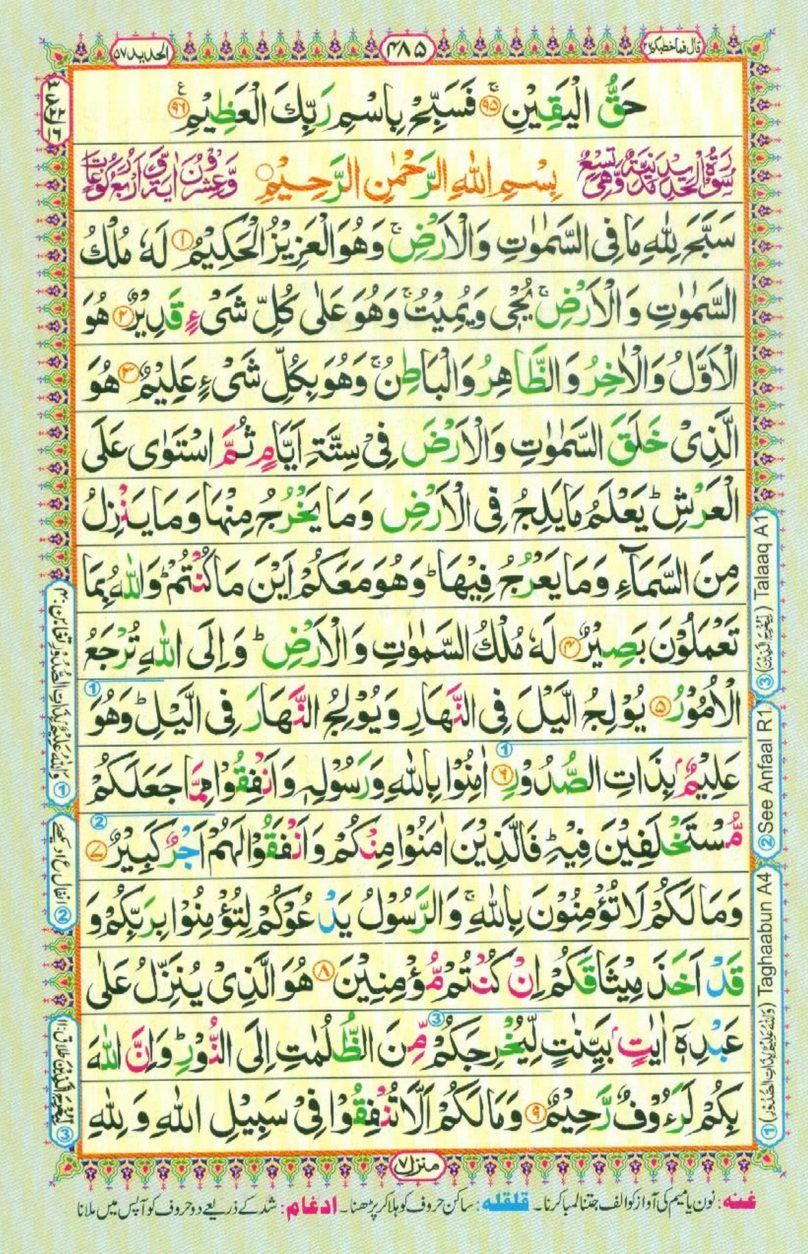 قال فما خطبكم ٢٧
٤٨٥
الحديد ٥٧
حَقُّ الْيَقِيْنِۚ ﴿٩٥﴾ فَسَبِّحْ بِاسْمِ رَبِّكَ الْعَظِيْمِ ﴿٩٦﴾
سُوْرَةُ الْحَدِيْدِ مَدَنِيَّةٌ وَّهِيَ تِسْعٌ
بِسْمِ اللّٰهِ الرَّحْمٰنِ الرَّحِيْمِ
وَّعِشْرُوْنَ اٰيَةً وَّاَرْبَعُ رُكُوْعَاتٍ
سَبَّحَ لِلّٰهِ مَا فِى السَّمٰوٰتِ وَالْاَرْضِۚ وَهُوَ الْعَزِيْزُ الْحَكِيْمُ ﴿١﴾ لَهٗ مُلْكُ
السَّمٰوٰتِ وَالْاَرْضِۚ يُحْىٖ وَيُمِيْتُۚ وَهُوَ عَلٰى كُلِّ شَىْءٍ قَدِيْرٌ ﴿٢﴾ هُوَ
الْاَوَّلُ وَالْاٰخِرُ وَالظَّاهِرُ وَالْبَاطِنُۚ وَهُوَ بِكُلِّ شَىْءٍ عَلِيْمٌ ﴿٣﴾ هُوَ
الَّذِىْ خَلَقَ السَّمٰوٰتِ وَالْاَرْضَ فِىْ سِتَّةِ اَيَّامٍ ثُمَّ اسْتَوٰى عَلَى
الْعَرْشِؕ يَعْلَمُ مَا يَلِجُ فِى الْاَرْضِ وَمَا يَخْرُجُ مِنْهَا وَمَا يَنْزِلُ
مِنَ السَّمَآءِ وَمَا يَعْرُجُ فِيْهَاؕ وَهُوَ مَعَكُمْ اَيْنَ مَا كُنْتُمْؕ وَاللّٰهُ بِمَا
تَعْمَلُوْنَ بَصِيْرٌ ﴿٤﴾ لَهٗ مُلْكُ السَّمٰوٰتِ وَالْاَرْضِؕ وَاِلَى اللّٰهِ تُرْجَعُ
الْاُمُوْرُ ﴿٥﴾ يُوْلِجُ الَّيْلَ فِى النَّهَارِ وَيُوْلِجُ النَّهَارَ فِى الَّيْلِؕ وَهُوَ
عَلِيْمٌۢ بِذَاتِ الصُّدُوْرِ ﴿٦﴾ اٰمِنُوْا بِاللّٰهِ وَرَسُوْلِهٖ وَاَنْفِقُوْا مِمَّا جَعَلَكُمْ
مُّسْتَخْلَفِيْنَ فِيْهِؕ فَالَّذِيْنَ اٰمَنُوْا مِنْكُمْ وَاَنْفَقُوْا لَهُمْ اَجْرٌ كَبِيْرٌ ﴿٧﴾
وَمَا لَكُمْ لَا تُؤْمِنُوْنَ بِاللّٰهِۚ وَالرَّسُوْلُ يَدْعُوْكُمْ لِتُؤْمِنُوْا بِرَبِّكُمْ وَ
قَدْ اَخَذَ مِيْثَاقَكُمْ اِنْ كُنْتُمْ مُّؤْمِنِيْنَ ﴿٨﴾ هُوَ الَّذِىْ يُنَزِّلُ عَلٰى
عَبْدِهٖۤ اٰيٰتٍۢ بَيِّنٰتٍ لِّيُخْرِجَكُمْ مِّنَ الظُّلُمٰتِ اِلَى النُّوْرِؕ وَاِنَّ اللّٰهَ
بِكُمْ لَرَءُوْفٌ رَّحِيْمٌ ﴿٩﴾ وَمَا لَكُمْ اَلَّا تُنْفِقُوْا فِىْ سَبِيْلِ اللّٰهِ وَلِلّٰهِ
③ Talaaq A1
② See Anfaal R1
① Taghaabun A4
منزل ٧
غنه: نون یا میم کی آواز کو الف جتنا لمبا کرنا۔ قلقله: ساکن حروف کو ہلا کر پڑھنا۔ ادغام: شد کے ذریعے دو حروف کو آپس میں ملانا